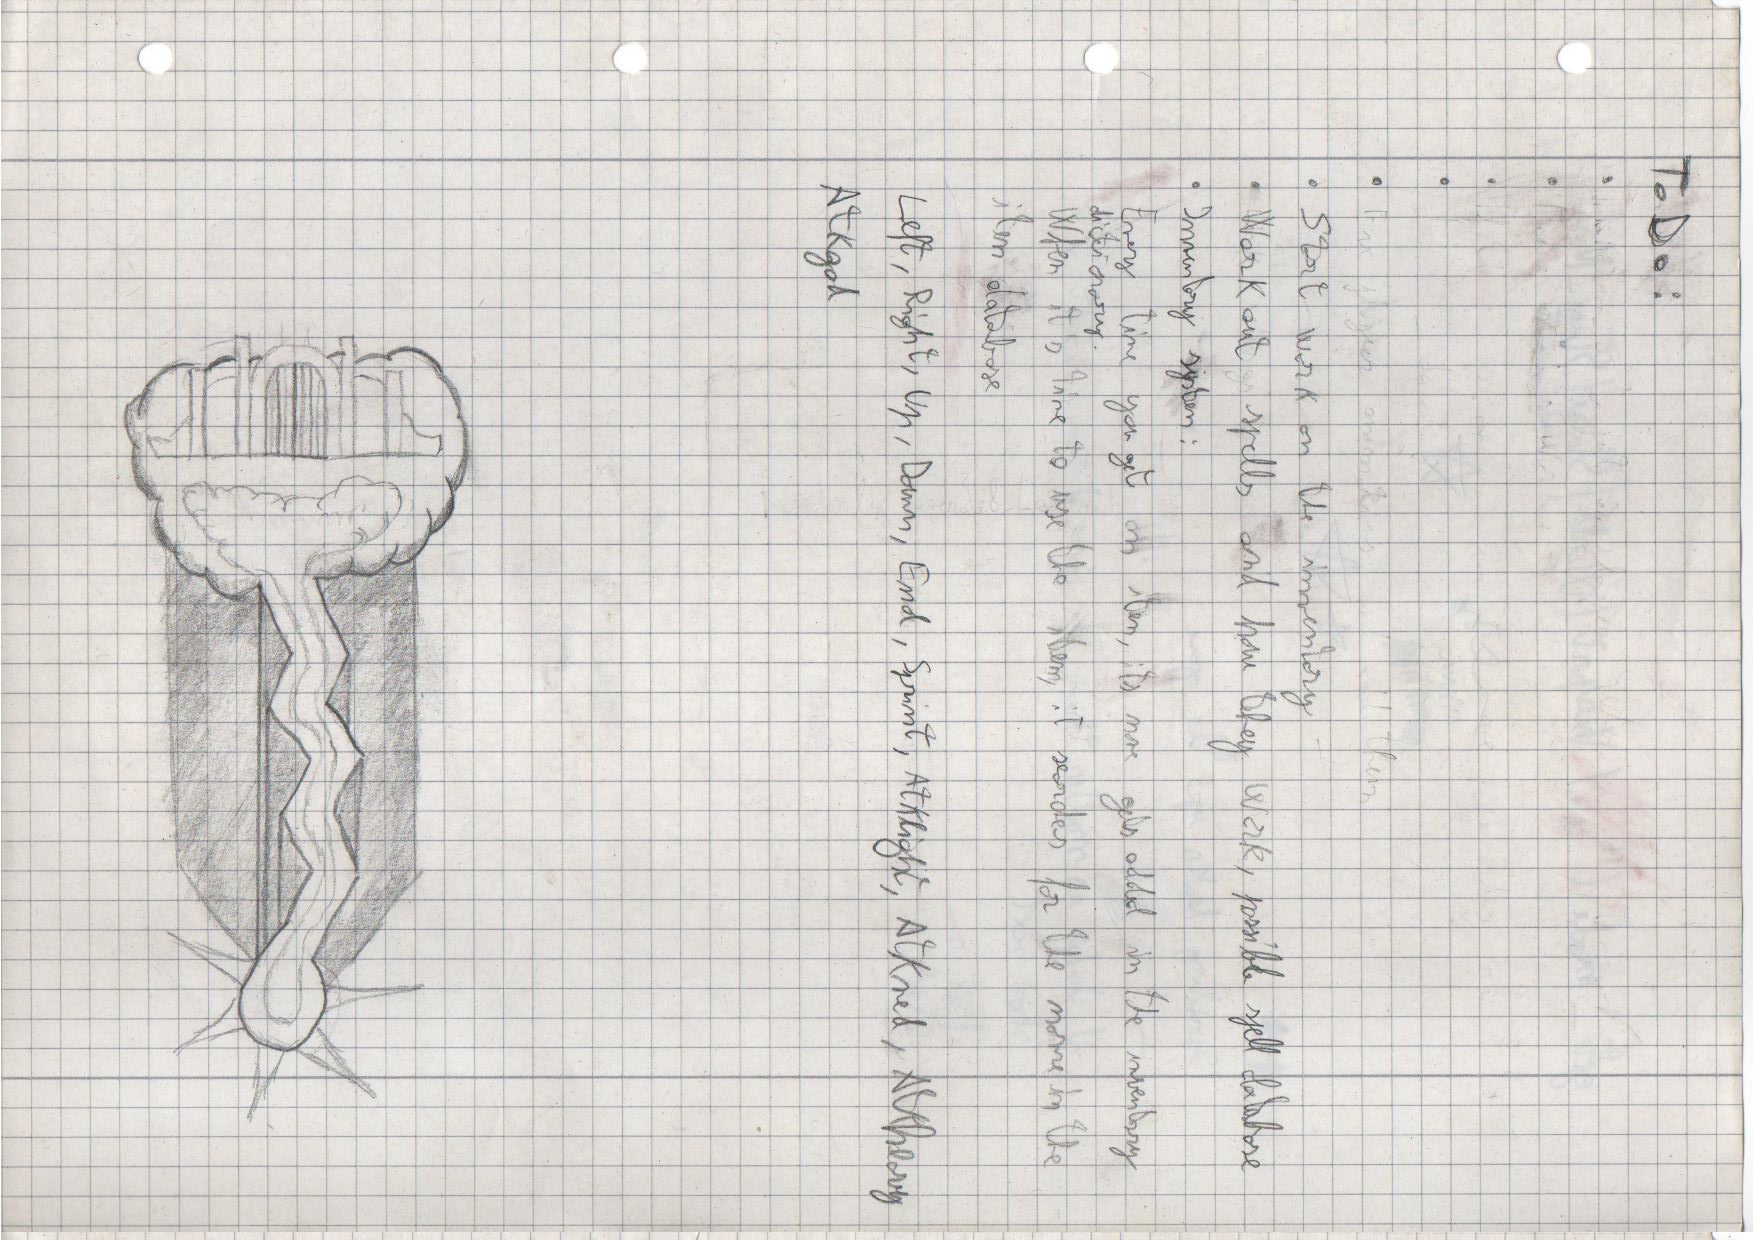 To Do:
• Start work on the inventory
• Work out spells and how they work, possible spell database
• Inventory system:
Every time you get an item, its name gets added in the inventory
dictionary.
When it's time to use the item, it searches for the name in the
item database
Left, Right, Up, Down, End, Sprint, Atklight, Atkned, Atkheavy
Atkgod